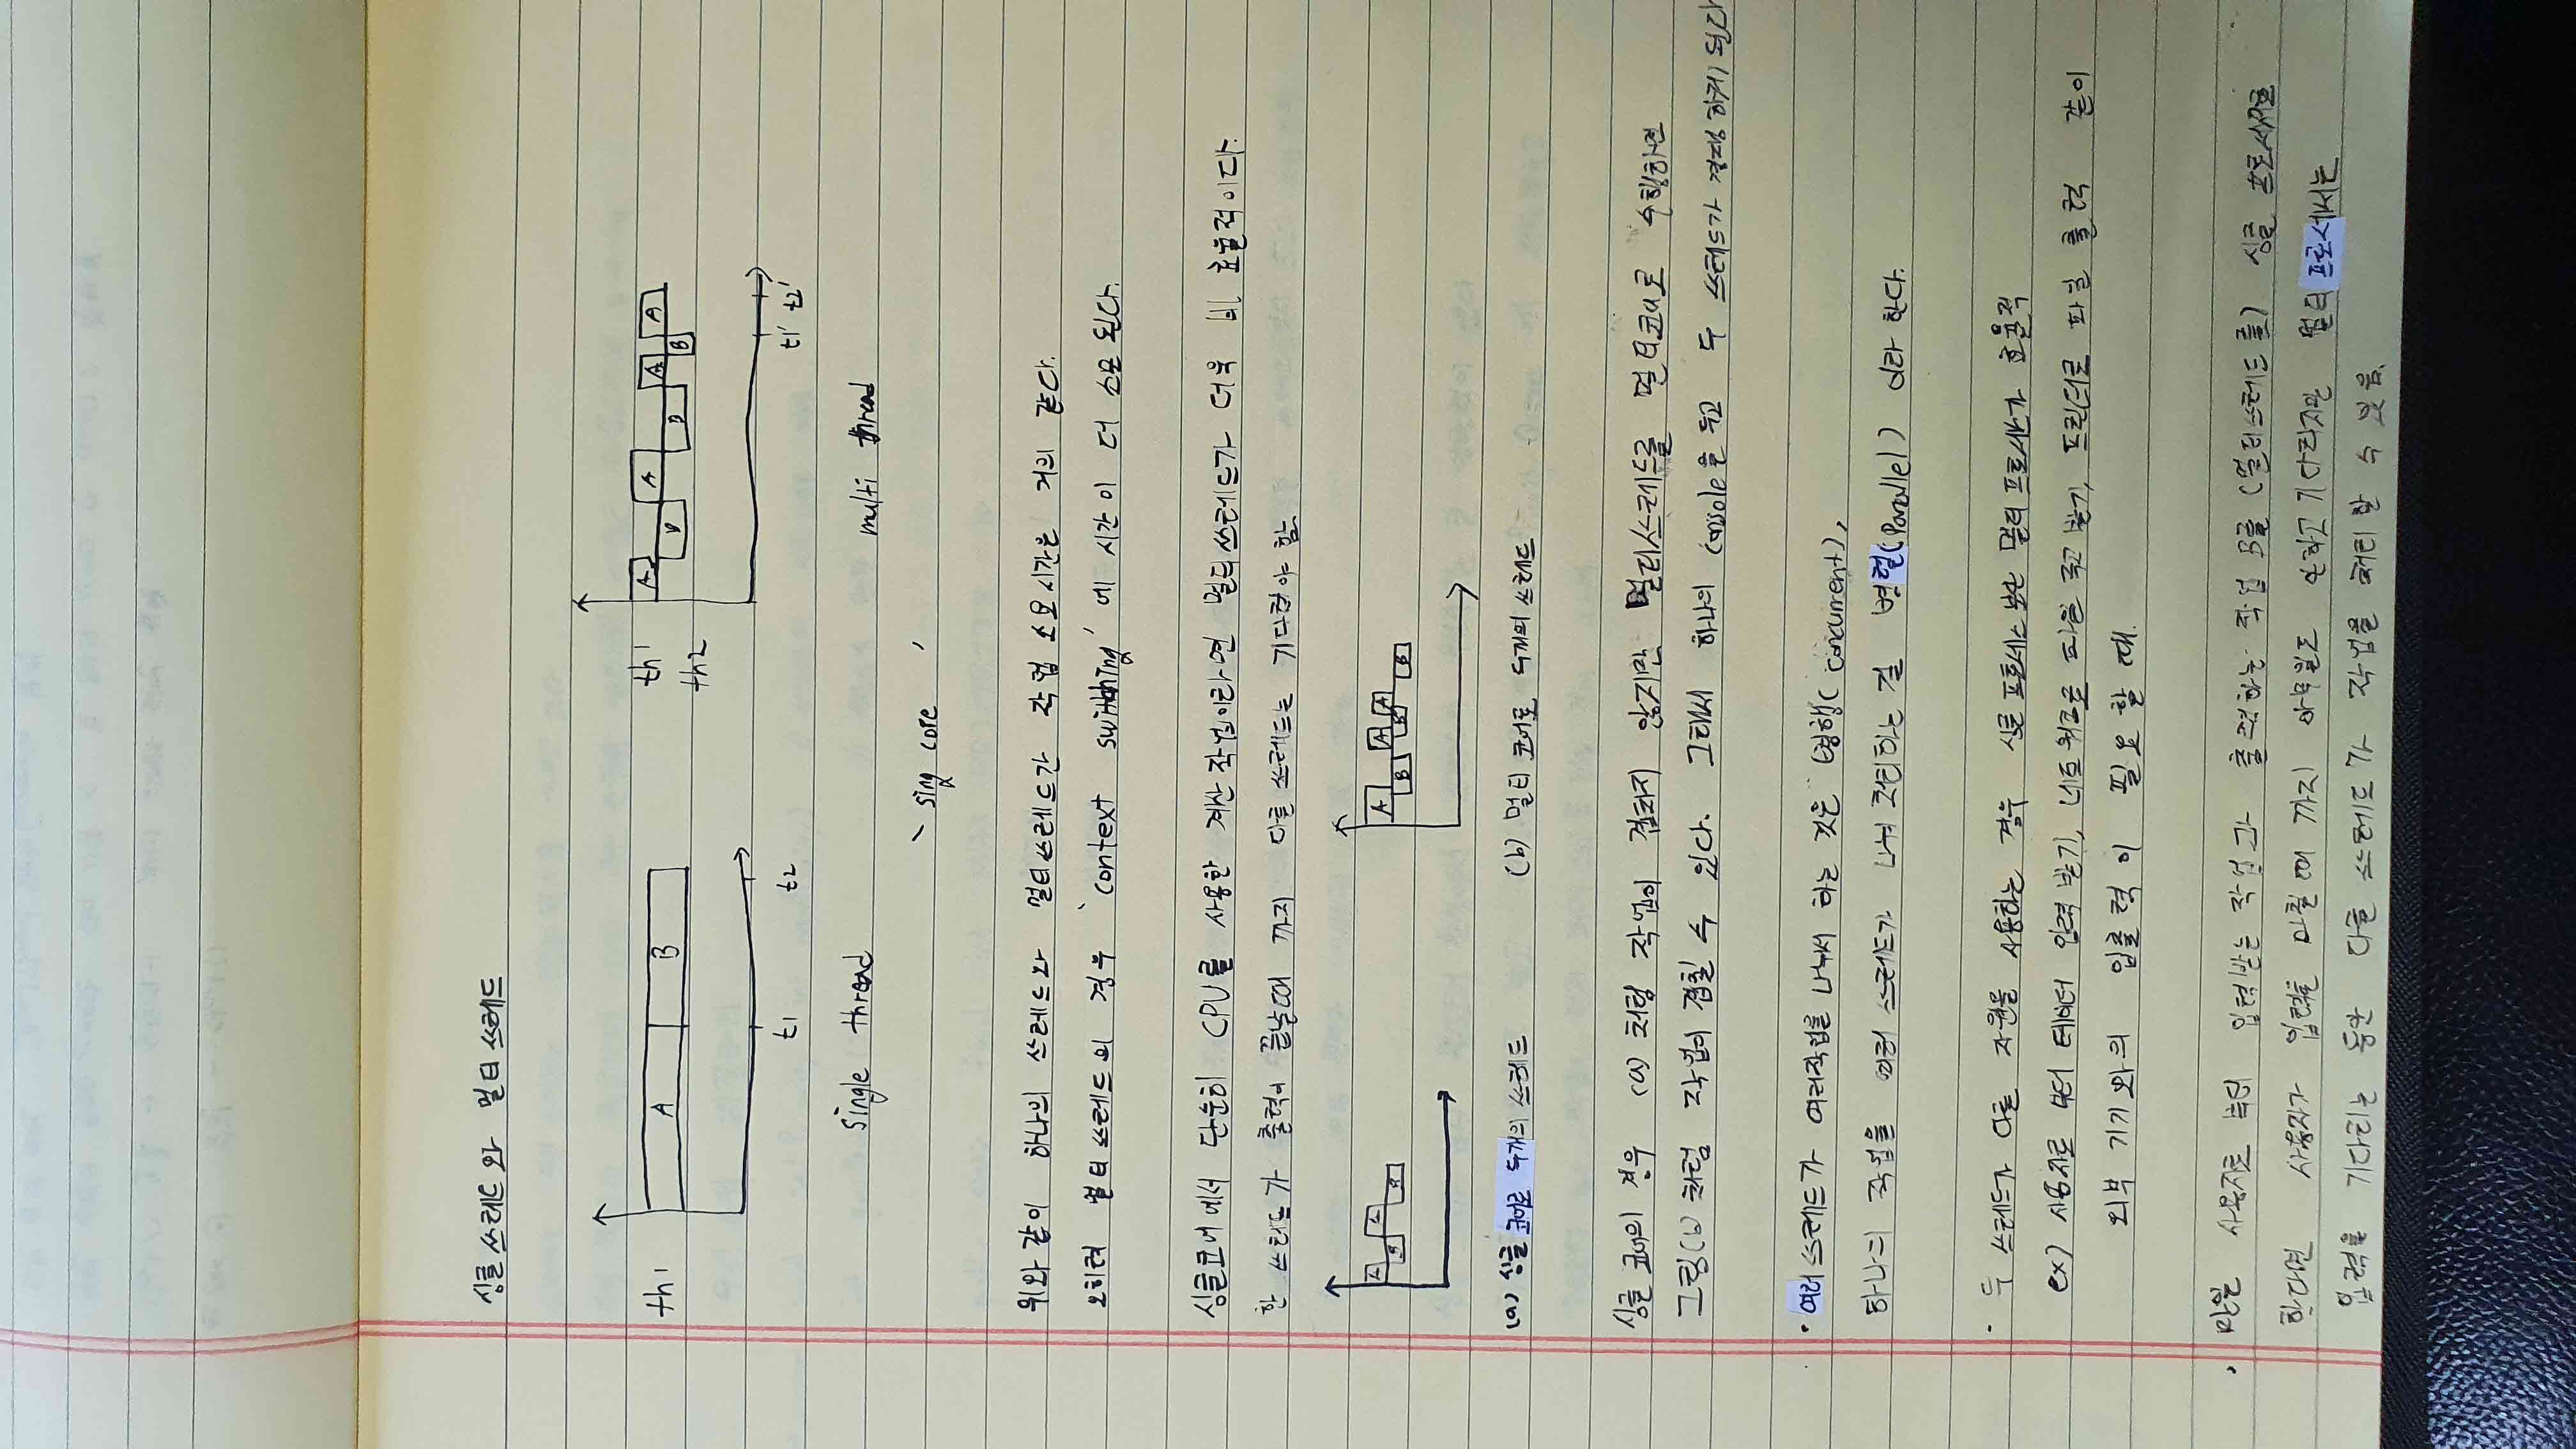 싱글 쓰레드와 멀티 쓰레드
th1 A B
t1 t2
single thread
th1 A A A A
th2 B
t1' t2'
multi thread
' sing core '
위와 같이 하나의 쓰레드와 멀티쓰레드간 작업 소모시간은 거의 같다.
오히려 멀티 쓰레드의 경우 'context switching' 에 시간이 더 소모 된다.
싱글코어에서 단순히 CPU를 사용한 계산 작업이라면 멀티 쓰레드가 더욱 비 효율적이다.
한 쓰레드가 출력이 끝날때 까지 다른 쓰레드는 기다려야 함.
A B A B
A B A B A B
(a) 싱글 코어로 두개의 쓰레드
(b) 멀티 코어로 두개의 쓰레드
싱글 코어의 경우 (a) 처럼 작업이 겹치지 않지만 멀티쓰레드를 멀티코어로 수행하면
그림(b) 처럼 작업이 겹칠 수 있다. 그래서 하나의 console을 두고 두 쓰레드가 경쟁하게 된다
· 여러 쓰레드가 여러작업을 나눠서 하는 것은 병행(concurrent),
하나의 작업을 여러 쓰레드가 나눠 처리하는 걸 병렬(Parallel) 이라 한다.
· 두 쓰레드가 다른 자원을 사용하는 경우 싱글 프로세스 보단 멀티 프로세스가 효율적
ex) 사용자로 부터 데이터 입력 받기, 네트워크로 파일 주고 받기, 프린터로 파일 출력 같이
외부 기기와의 입출력이 필요 할 때.
· 만일 사용자로 부터 입력받는 작업과 출력하는 작업 B를 (멀티쓰레드를) 싱글
한다면 사용자가 입력을 마칠 때 까지 아무일도 안하고 기다리지만 멀티 프로세서는
입력을 기다리는 동안 다른 쓰레드가 작업을 처리 할 수